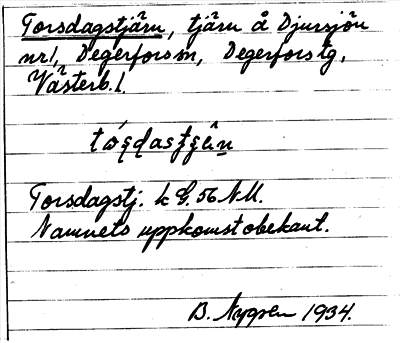 Torsdagstjärn, tjärn å Djursjön
nr 1, Degerfors sn, Degerfors tg,
Västerb. l.
Torsdagstj. k G. 56 N.M.
Namnets uppkomst obekant.
B. Nygren 1934.